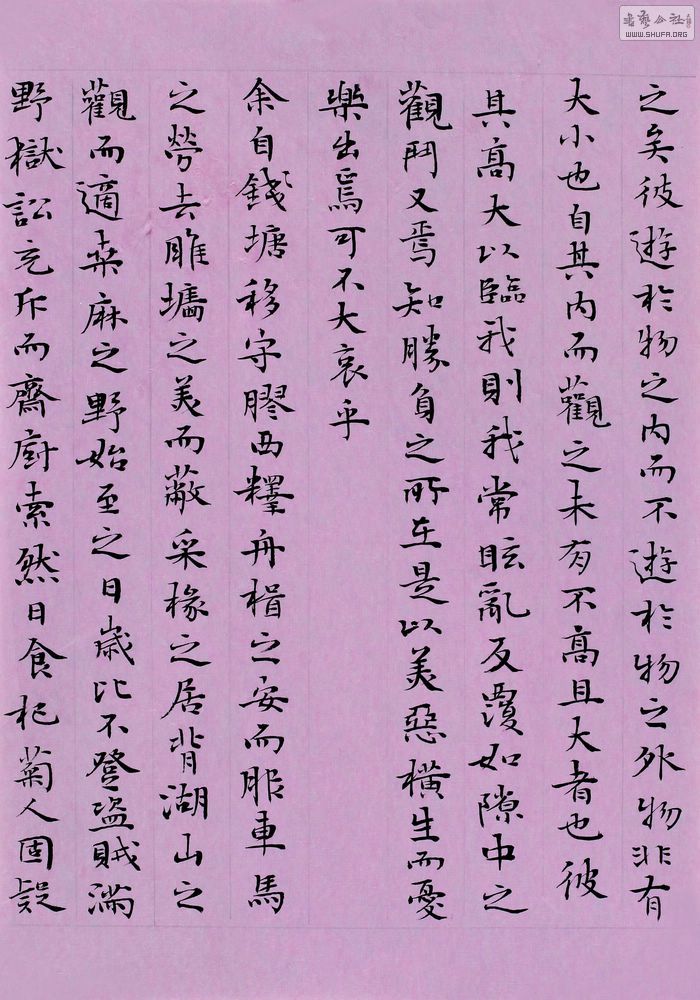 之矣彼遊於物之内而不遊於物之外物非有
大小也自其内而觀之未有不高且大者也彼
其高大以臨我則我常眩亂反覆如隙中之
觀鬥又焉知勝負之所在是以美惡橫生而憂
樂出焉可不大哀乎
余自錢塘移守膠西釋舟楫之安而服車馬
之勞去雕墻之美而蔽采椽之居背湖山之
觀而適桑麻之野始至之日歲比不登盜賊滿
野獄訟充斥而齋廚索然日食杞菊人固疑
书艺公社
WWW.SHUFA.ORG